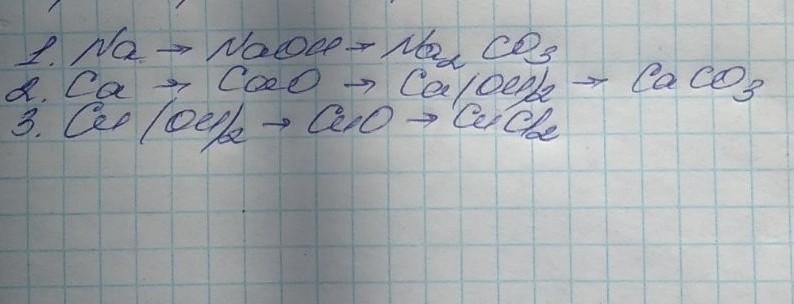 1. Na → NaOH → Na₂CO₃
2. Ca → CaO → Ca(OH)₂ → CaCO₃
3. Cu(OH)₂ → CuO → CuCl₂